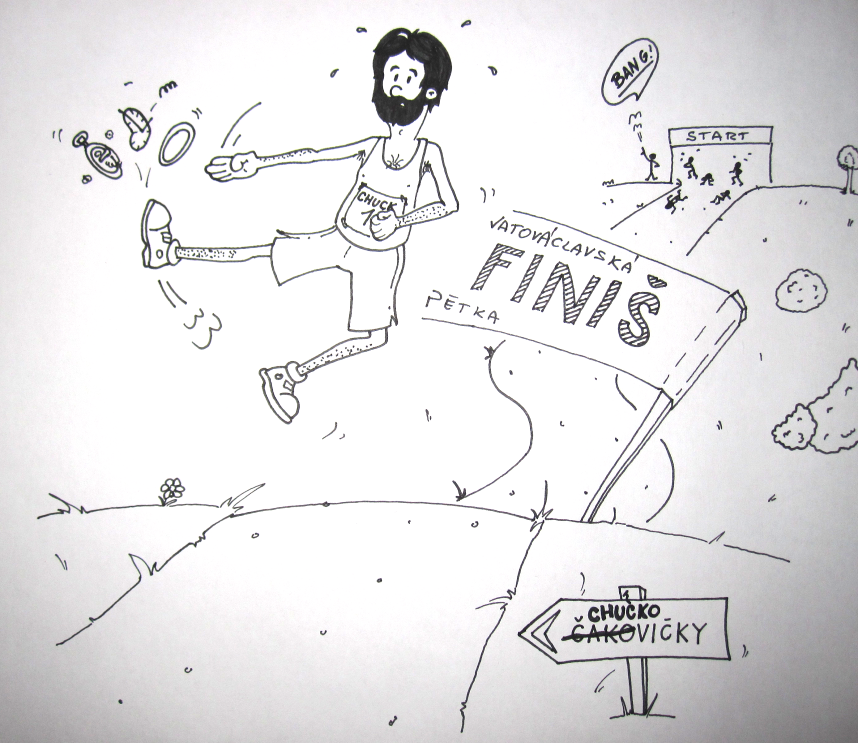 BANG!
START
CHUCK
1
VATOVÁCLAVSKÁ
FINIŠ
PĚTKA
CHUCKO
ČAKOVIČKY